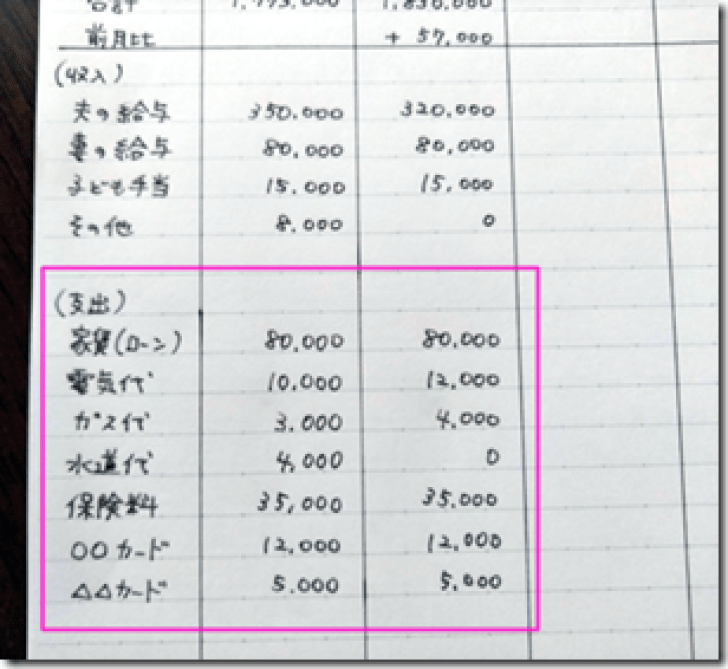 合計 1,793,000 1,850,000
前月比 + 57,000
(収入)
夫の給与 350,000 320,000
妻の給与 80,000 80,000
子ども手当 15,000 15,000
その他 8,000 0
(支出)
家賃(ローン) 80,000 80,000
電気代 10,000 12,000
ガス代 3,000 4,000
水道代 4,000 0
保険料 35,000 35,000
○○カード 12,000 12,000
△△カード 5,000 5,000